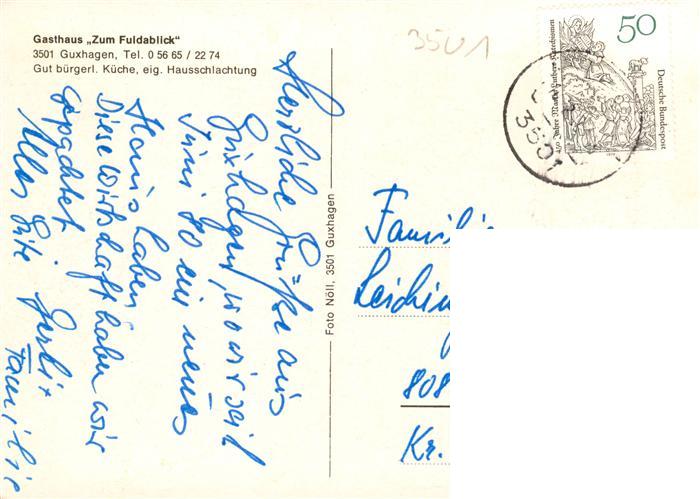 Gasthaus „Zum Fuldablick"
3501 Guxhagen, Tel. 0 56 65 / 22 74
Gut bürgerl. Küche, eig. Hausschlachtung
Herzliche Grüße aus
Guxhagen, wo wir seit
Juni 80 ein neues
Haus haben
Diese Wirtschaft haben wir
gepachtet
Alles Gute
Familie
Foto Nöll, 3501 Guxhagen
3501
50
Deutsche Bundespost
450 Jahre Martin Luthers Katechismen
1979
3501
Familie
808
Kr.